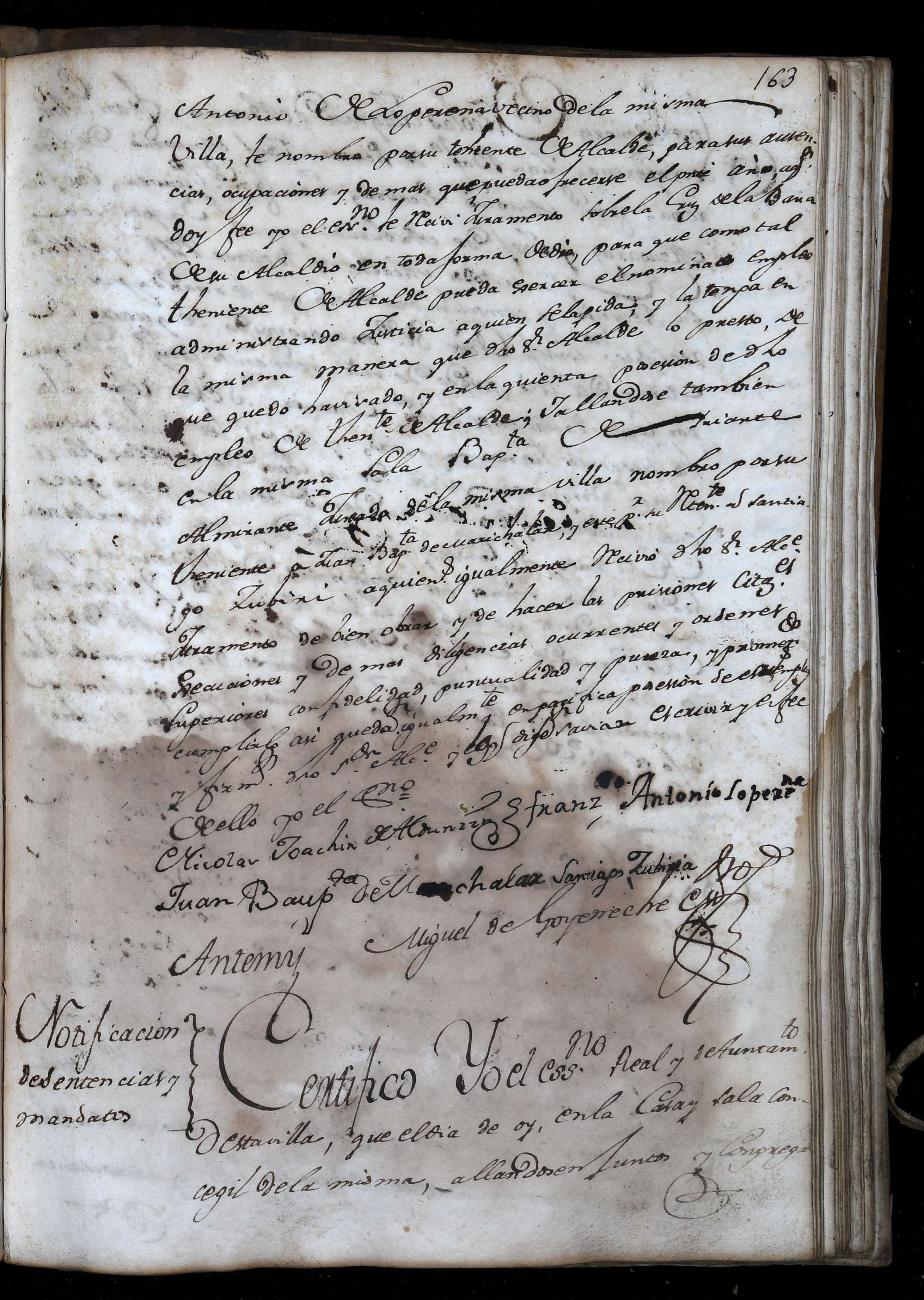 163
Antonio de Loperena vecino de la misma
Villa, te nombro por su teniente de Alcalde, para sus ausen-
cias, ocupaciones y demas que puedao frecerse el prte año, aq.n
doy fee yo el ess.no le Recivi Juramento sobrela Cruz dela Bara
de su Alcaldio en toda forma dedro, para que como tal
theniente de Alcalde pueda exercer el nominado empleo
administrando Justicia aquien selapida, y la tenga en
la misma manera que dho S.r Alcalde lo presto, de
que quedo havivado, y en la quienta poesion de dho
empleo de then.te de Alcalde; y allandose tambien
en la misma sala Bap.ta de Iriarte
Almirante Jurado dela misma villa nombro por su
theniente a Juan Bap.ta de Marichalar, y este p.r su Nten.te a Santia-
go Zubiri aquien.s igualmente Recivio dho S.r Alc.e
Juramento de bien obrar y de hacer las prisiones Citaz.es
Execuciones y demas diligencias ocurrentes y ordenes
Superiores con fidelidad, puntualidad y pureza, y prome.do
cumplirlo asi quedo igualm.te en pacifica poesion de empleo
y firm. dho S.r Alc.e y que dige savian escrivir y eifee
de ello yo el Ess.no
Nicolas Joachin de Franz Antonio Loperena
Juan Baup.ta de Marichalar Santiago Zubiria
Antemy Miguel de Goyeneche Ess.no
Notificacion
desentencias y
mandatos
Certifico Yo el ess.no Real y de Juntam.to
Destavilla, que el dia de oy, en la Casa y sala con-
cegil dela misma, allandosen Juntos y Congrega-